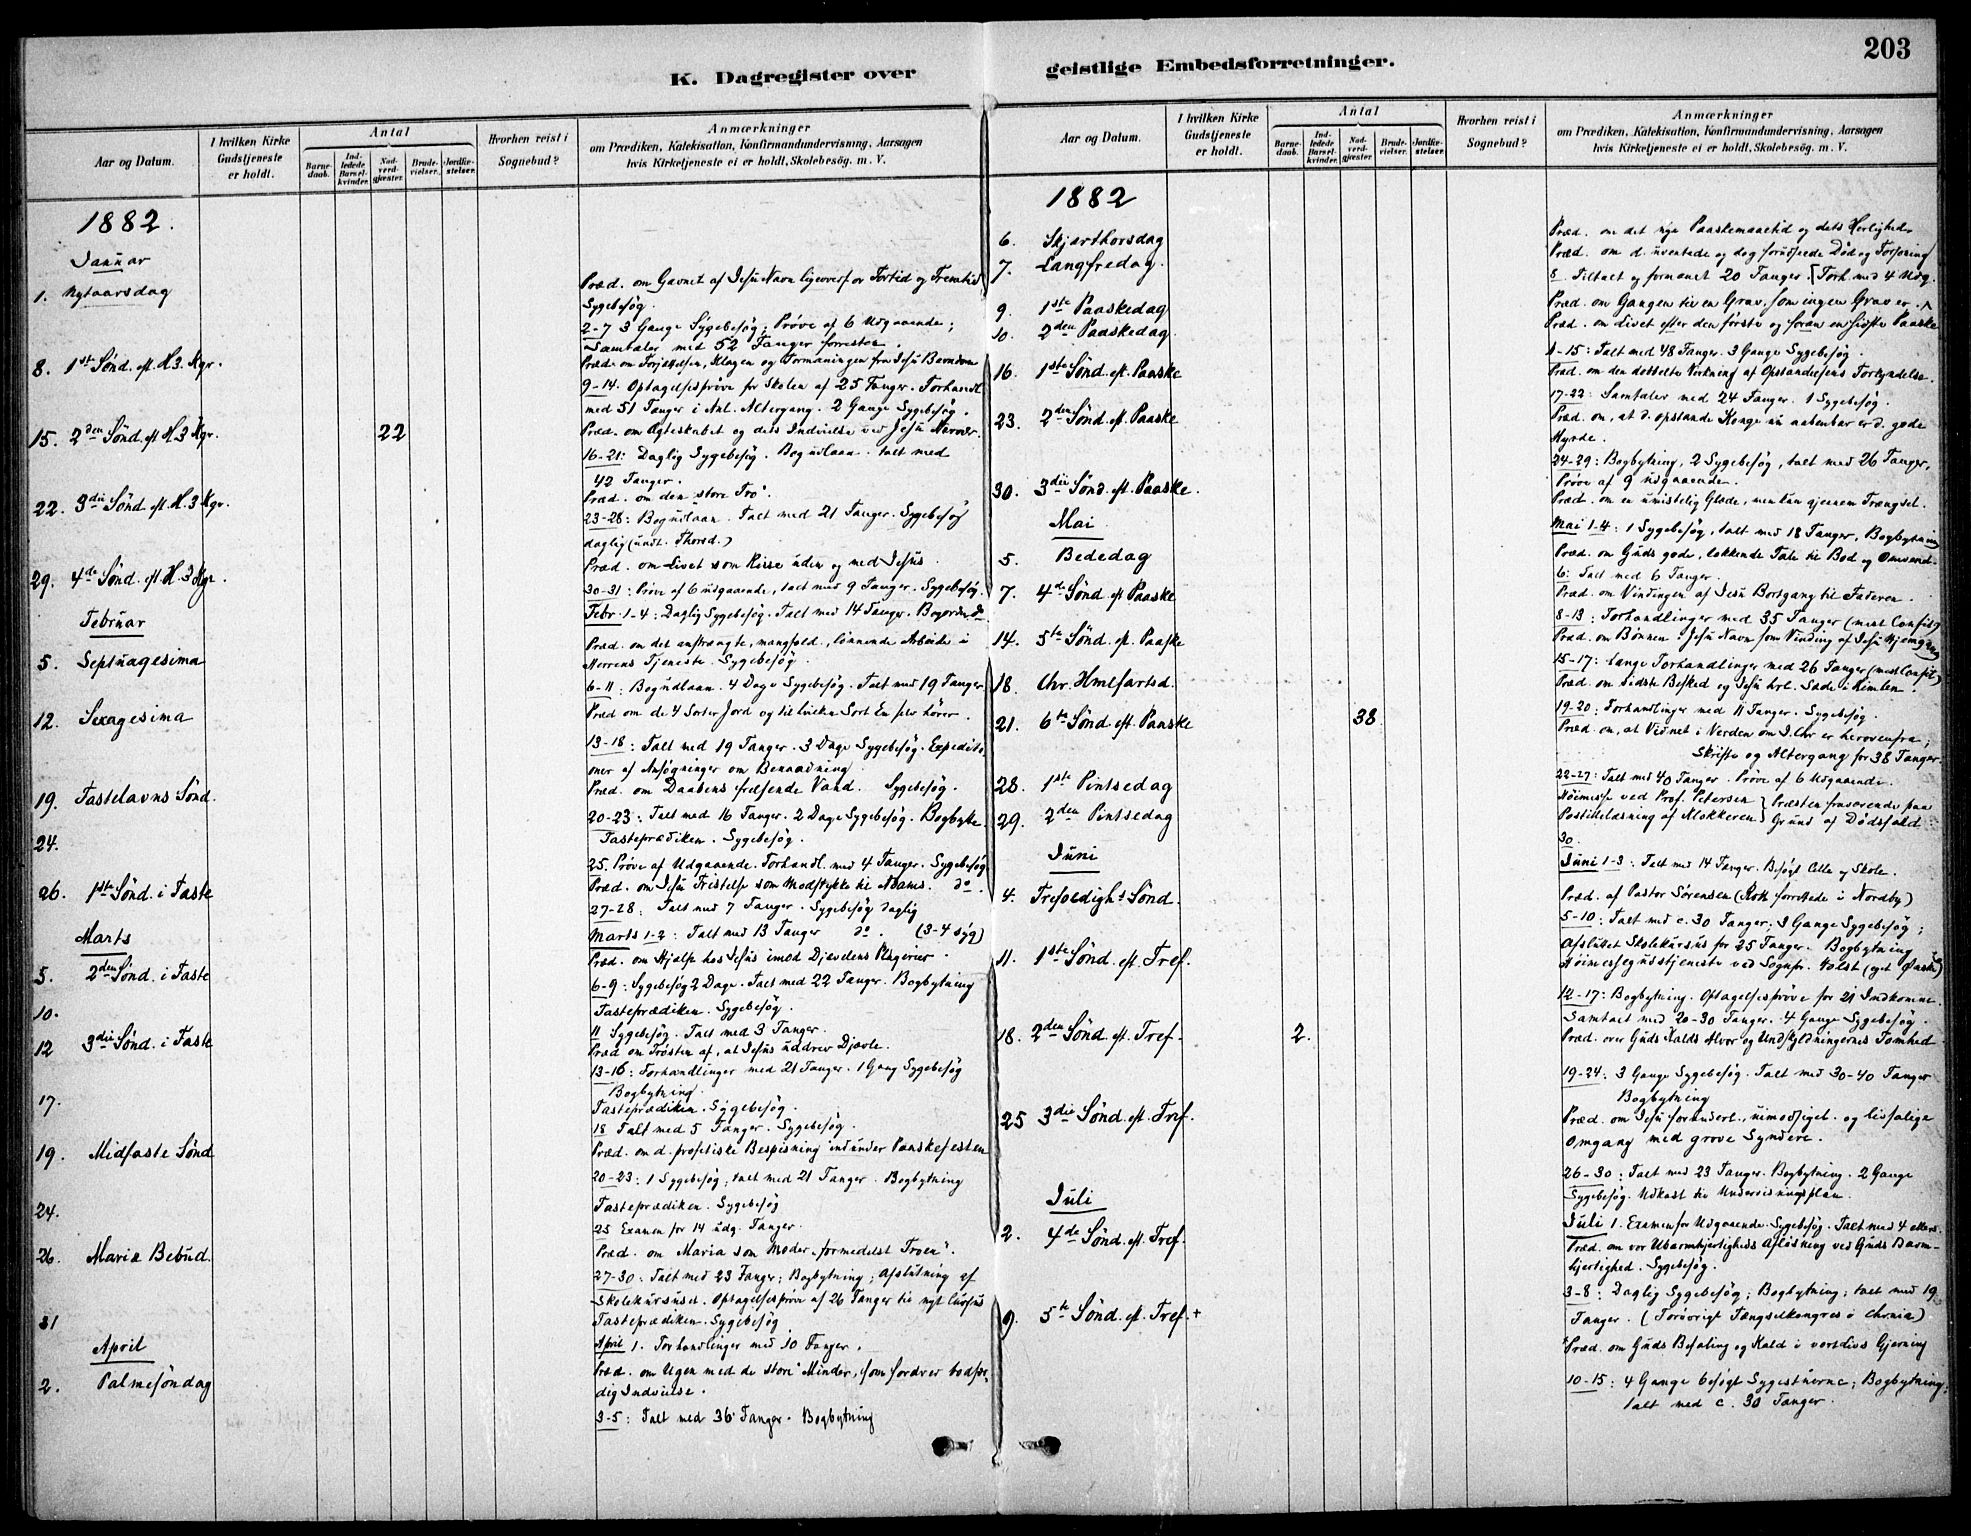 203
K. Dagregister over
geistlige Embedsforretninger.
Aar og Datum.
I hvilken Kirke Gudstjeneste er holdt.
Antal
Barnedaab.
Indledede Barselkvinder.
Nadverdgjæster.
Brudevielser.
Jordfæstelser.
Hvorhen reist i Sognebud?
Anmærkninger
om Prædiken, Katekisation, Konfirmandundervisning, Aarsagen
hvis Kirketjeneste ei er holdt, Skolebesøg. m. V.
1882.
Januar
1. Nytaarsdag
Præd. om Gavnet af Jesu Navn ligeoverfor Fortid og Fremtid
Sygebesøg.
2-7 3 Gange Sygebesøg; Prøve af 6 Udgaaende;
Samtaler med 52 Fanger forresten.
8. 1ste Sønd. ef. H. 3 Kgr.
9-14. Optagelsesprøve for Skolen af 25 Fanger. Forhandl.
med 51 Fanger i Anl. Altergang. 2 Gange Sygebesøg.
15. 2den Sønd. ef. H. 3 Kgr. 22
Præd. om Ægteskabet og dets Indvielse ved Jesu Nærvær.
16-21: Daglig Sygebesøg. Bogudlaan. Talt med
42 Fanger.
22. 3die Sønd. ef. H. 3 Kgr.
Præd. om den store Tro.
23-28: Bogudlaan. Talt med 21 Fanger. Sygebesøg
daglig (undt. Thorsd.)
29. 4de Sønd. ef. H. 3 Kgr.
Præd. om Livet som Reise uden og med Jesus.
30-31: Prøve af 6 udgaaende, talt med 9 Fanger. Sygebesøg.
Febr. 1-4: Daglig Sygebesøg. Talt med 14 Fanger.
Februar
5. Septuagesima
Præd. om det anstrængte, mangfold., lønnende Arbeide i
Herrens Tjeneste. Sygebesøg.
6-11: Bogudlaan. 4 Dage Sygebesøg. Talt med 19 Fanger.
12. Sexagesima
Præd om de 4 Sorter Jord og til hvilken Sort En selv hører.
13-18: Talt med 19 Fanger. 3 Dage Sygebesøg. Expediti-
oner af Ansøgninger om Benaadning.
19. Fastelavns Sønd.
Præd. om Daabens frelsende Vand. Sygebesøg.
20-23: Talt med 16 Fanger. 2 Dage Sygebesøg. Bogbytte.
24.
Fasteprædiken. Sygebesøg.
25. Prøve af Udgaaende. Forhandl. med 4 Fanger. Sygebesøg
26. 1ste Sønd. i Faste
Præd. om Jesu Fristelse som Modstykke til Adams. do.
27-28: Talt med 7 Fanger. Sygebesøg daglig
Marts
Marts 1-2: Talt med 13 Fanger do. (3-4 syg)
5. 2den Sønd. i Faste
Præd. om Hjælp hos Jesus imod Djævelens Plagerier.
6-9: Sygebesøg 2 Dage. Talt med 22 Fanger. Bogbytning
10.
Fasteprædiken. Sygebesøg.
11 Sygebesøg. Talt med 3 Fanger.
12 3die Sønd. i Faste
Præd om Trøsten af, at Jesus uddrev Djævle.
13-16: Forhandlinger med 21 Fanger. 1 Gang Sygebesøg
Bogbytning.
17.
Fasteprædiken. Sygebesøg.
18 Talt med 5 Fanger. Sygebesøg.
19. Midfaste Sønd
Præd. om d. profetiske Bespisning indunder Paaskefesten
20-23: 1 Sygebesøg; talt med 21 Fanger. Bogbytning
24.
Fasteprædiken. Sygebesøg
25 Examen for 14 udg. Fanger.
26. Mariæ Bebud.
Præd. om Maria som Moder „formedelst Troen“.
27-30: Talt med 23 Fanger; Bogbytning; Afslutning af
Skolekursuset. Optagelsesprøve af 26 Fanger til nyt Cursus
31
Fasteprædiken. Sygebesøg
April
April 1. Forhandlinger med 10 Fanger.
2. Palmesøndag
Præd. om Ugen med de store Minder, som fordrer
dig Indvielse.
3-5: Talt med 36 Fanger. Bogbytning
Aar og Datum.
I hvilken Kirke Gudstjeneste er holdt.
Antal
Barnedaab.
Indledede Barselkvinder.
Nadverdgjæster.
Brudevielser.
Jordfæstelser.
Hvorhen reist i Sognebud?
Anmærkninger
om Prædiken, Katekisation, Konfirmandundervisning, Aarsagen
hvis Kirketjeneste ei er holdt, Skolebesøg. m. V.
1882
6. Skjærthorsdag
Præd. om det nye Paaskemaaltid og dets Herlighed.
7. Langfredag.
Præd. om d. uventede og dog forudsete Død og Forsoning
8 Tiltalt og formanet 20 Fanger.
9. 1ste Paaskedag
Præd. om Gangen til en Grav, som ingen Grav er.
10. 2den Paaskedag.
Præd. om Livet efter den første og foran en sidste Paaske
11-15: Talt med 48 Fanger. 3 Gange Sygebesøg.
16. 1ste Sønd. ef. Paaske
Præd. om den dobbelte Virkning af Opstandelsens Forkyndelse.
17-22: Samtaler med 24 Fanger. 1 Sygebesøg.
23. 2den Sønd. ef. Paaske
Præd. om, at d. opstandne Konge nu aabenbar er d. gode
Hyrde.
24-29: Bogbytning, 2 Sygebesøg, talt med 26 Fanger,
Prøve af 9 udgaaende.
30. 3die Sønd. ef. Paaske.
Præd. om en umistelig Glæde, men kun gjennem Trængsel.
Mai
Mai 1-4: 1 Sygebesøg, talt med 18 Fanger, Bogbytning
5. Bededag
Præd. om Guds gode, lokkende Tale til Bod og Omvend-
6: Talt med 6 Fanger.
7. 4de Sønd. ef. Paaske
Præd. om Vindingen af Jesu Bortgang til Faderen.
8-13: Forhandlinger med 35 Fanger
14. 5te Sønd. ef. Paaske
Præd. om Bønnen i Jesu Navn som Vinding af Jesu Hjemgang
15-17: Lange Forhandlinger med 26 Fanger
18. Chr. Hmlfartsd.
Præd. om sidste Besked og Jesu hrl. Sæde i Himlen.
19-20: Forhandlinger med 11 Fanger. Sygebesøg.
21. 6te Sønd. eft. Paaske 38
Præd. om, at Vidnet i Verden om J. Chr er herovenfra;
Skrifte og Altergang for 38 Fanger.
22-27: Talt med 40 Fanger. Prøve af 6 Udgaaende.
28. 1ste Pintsedag
Høimesse ved Prof. Petersen } Præsten fraværende paa
29. 2den Pintsedag
Postillelæsning af Klokkeren } Grund af Dødsfald
30.
Juni
Juni 1-3: Talt med 14 Fanger. Besøgt Celle og Skole.
4. Trefoldighs Sønd.
Præd. af Pastor Sørensen
5-10: Talt med c. 30 Fanger; 3 Gange Sygebesøg;
Afsluttet Skolekursus for 25 Fanger. Bogbytning
11. 1ste Sønd. ef. Tref.
Høimessegudstjeneste ved Sognpr. Holst
12-17: Bogbytning. Optagelsesprøve for 21 Indkomne.
Samtalt med 20-30 Fanger. 4 Gange Sygebesøg.
18. 2den Sønd. ef. Tref. 2.
Præd. over Guds Kalds Alvor og Undskyldningernes Tomhed
19-24: 3 Gange Sygebesøg. Talt med 30-40 Fanger
Bogbytning
25 3die Sønd. ef. Tref.
Præd. om Jesu forundert., uimodsiget. og livsalige
Omgang med grove Syndere.
26-30: Talt med 23 Fanger. Bogbytning. 2 Gange
Sygebesøg. Udkast til Undervisningsplan.
Juli
Juli 1. Examen for Udgaaende. Sygebesøg. Talt med 4 ellers.
2. 4de Sønd. ef. Tref.
Præd. om vor Ubarmhjertigheds Afløsning ved Guds Barm-
hjertighed. Sygebesøg.
3-8: Daglig Sygebesøg; Bogbytning; talt med 19
Fanger. (Forøvrigt Fængselkongres i Chrnia)
9. 5te Sønd. ef. Tref. +
Præd. om Guds Befaling og Kald i vort Livs Gjerning
10-15: 4 Gange besøgt Sygestuerne; Bogbytning;
talt med c. 30 Fanger.